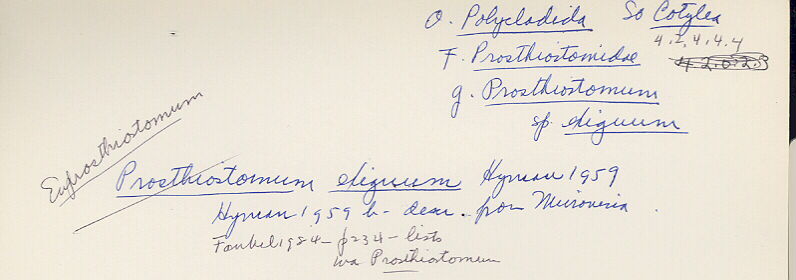 O. Polycladida So Cotylea
4.2.4.4.4
F. Prosthiostomidae 4 2.0.2.3
g. Prosthiostomum
sp. exiguum
Euprosthiostomum
Prosthiostomum exiguum Hyman 1959
Hyman 1959 b - descr. from Micronesia
Faubel 1984 - p234 - lists
wa Prosthiostomum